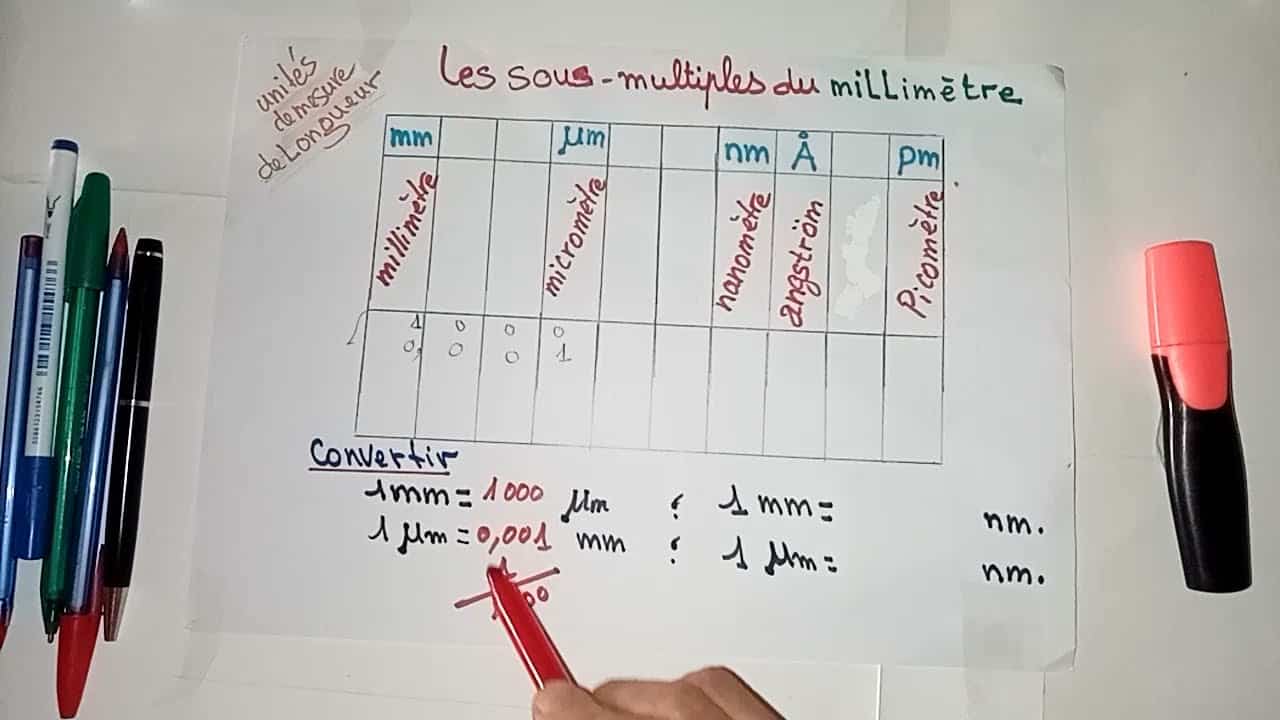 unités
de mesure
de Longueur
Les sous-multiples du millimètre
mm µm nm Å pm
millimètre micromètre nanomètre angström Picomètre
1 0 0 0
0, 0 0 1
Convertir
1mm = 1000 µm ; 1 mm = nm.
1 µm = 0,001 mm ; 1 µm = nm.